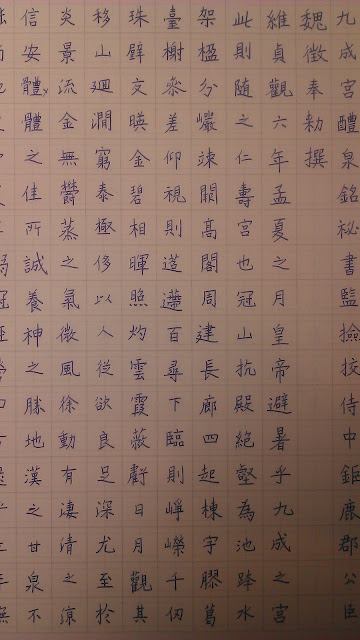 九成宮醴泉銘祕書監撿挍侍中鉅鹿郡公臣
魏徵奉勑撰
維貞觀六年孟夏之月皇帝避暑乎九成之宮
此則随之仁壽宮也冠山抗殿絕壑為池跨水
架楹分巖竦闕高閣周建長廊四起棟宇膠葛
臺榭叅差仰視則迢遰百尋下臨則崢嶸千仞
珠璧交暎金碧相暉照灼雲霞蔽虧日月觀其
移山廻澗窮泰極侈以人從欲良足深尤至於
炎景流金無鬱蒸之氣微風徐動有淒清之涼
信安體體之佳所誠養神之勝地漢之甘泉不